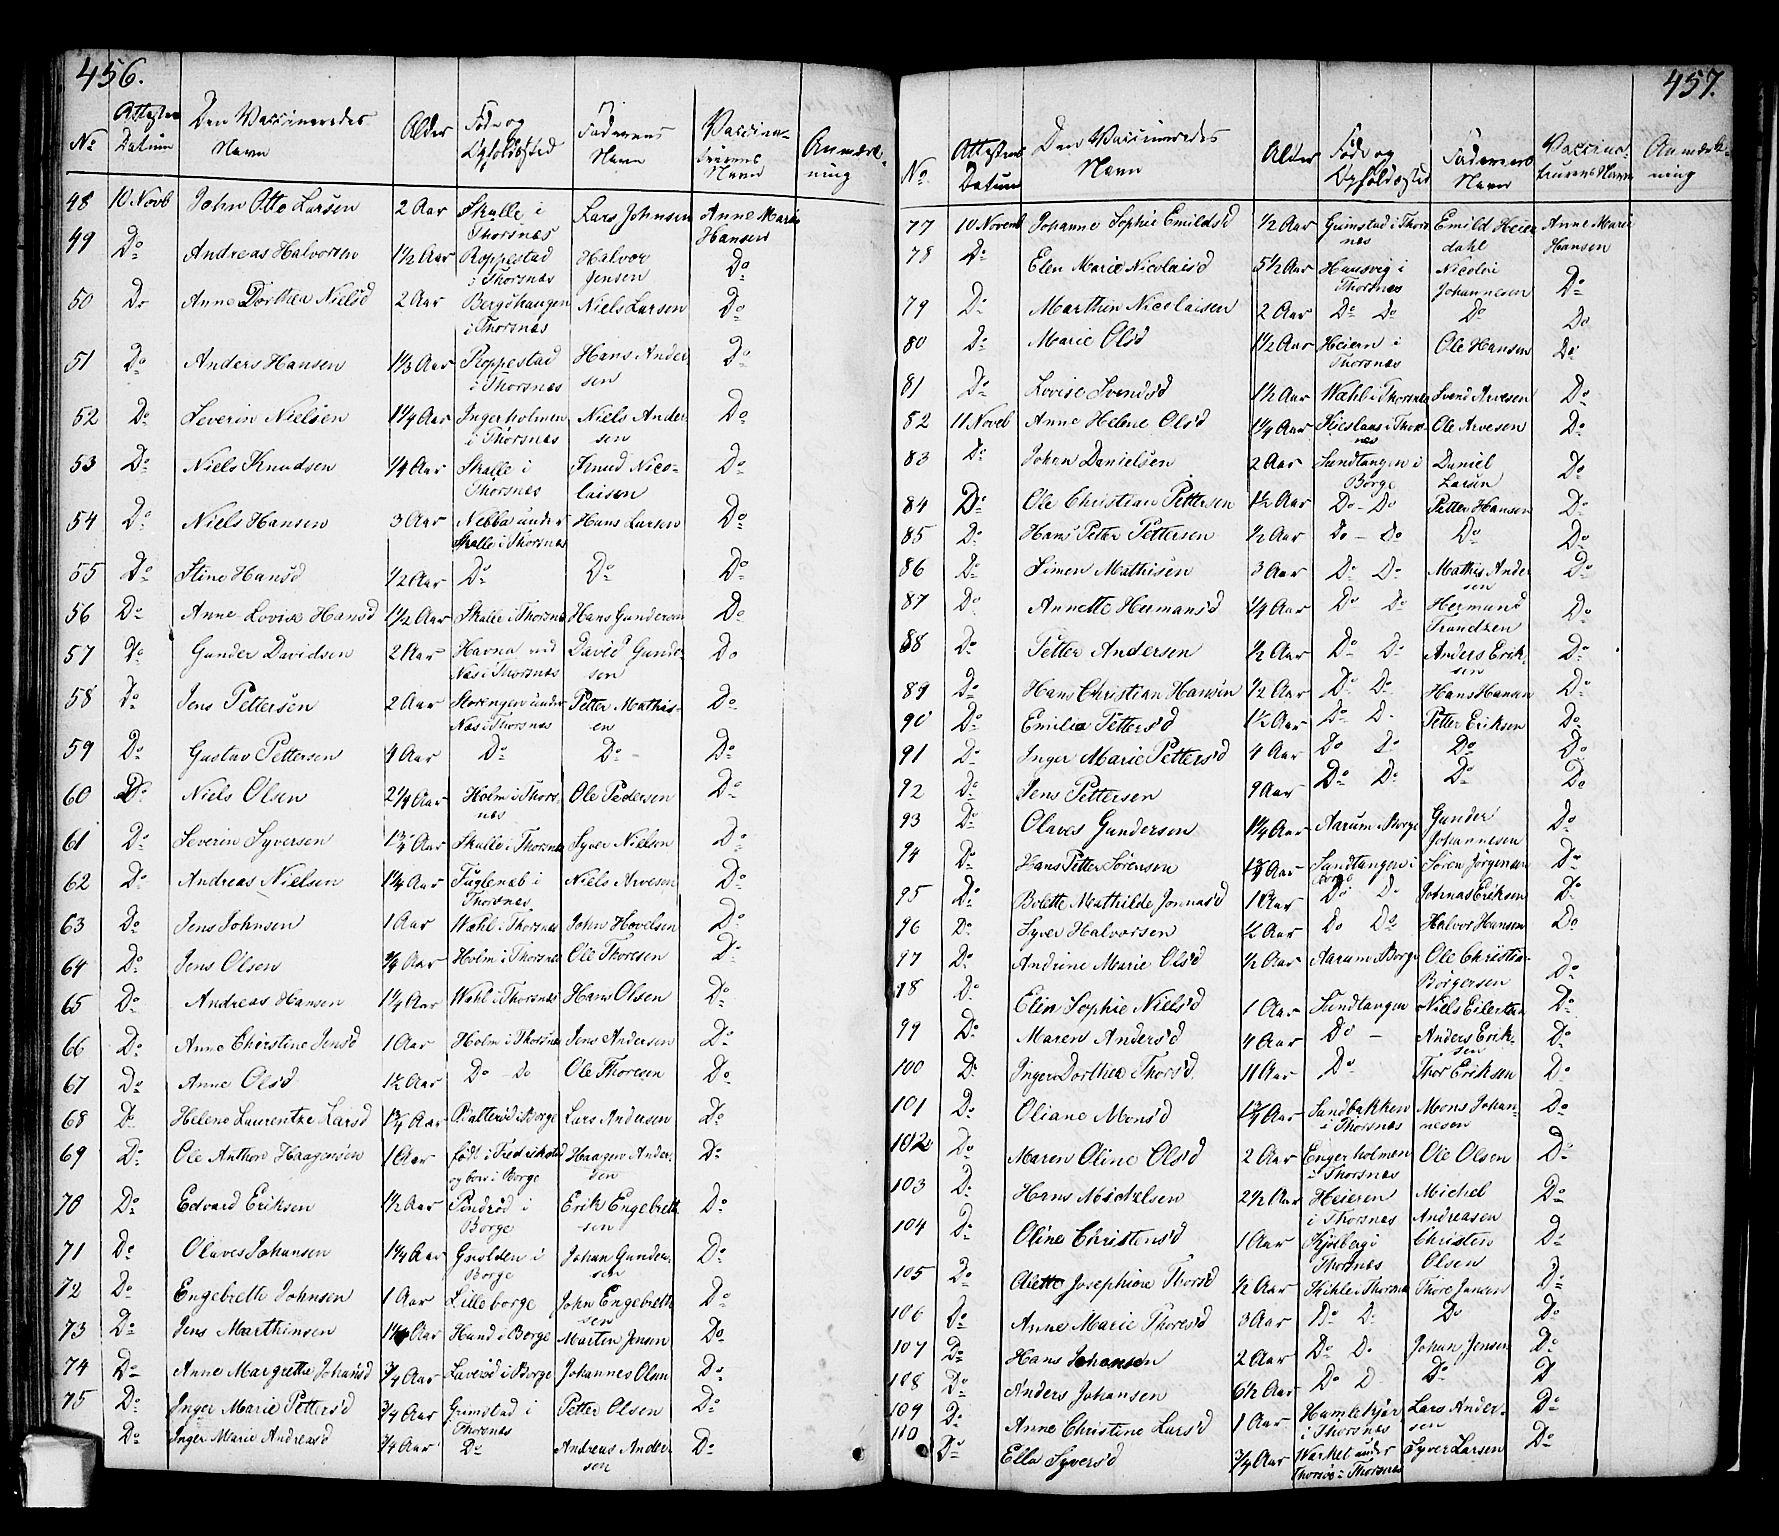 456.
No Attestens Datum Den Vaccineredes Navn Alder Føde og Opholdssted Faderens Navn Vaccinateurens Navn Anmærkning
48 10 Novb John Otto Larsen 2 Aar Skalle i Thorsnæs Lars Johnsen Anne Marie Hansen
49 Do Andreas Halvorsen 1½ Aar Roppestad i Thorsnæs Halvor Jensen Do
50 Do Anne Dorthea Nielsd 2 Aar Bergshaugen i Thorsnæs Niels Larsen Do
51 Do Anders Hansen 1⅓ Aar Roppestad i Thorsnæs Hans Andersen Do
52 Do Severin Nielsen 1¼ Aar Ingerholmen i Thorsnæs Niels Andersen Do
53 Do Niels Knudsen ¼ Aar Skalle i Thorsnæs Knud Nicolaisen Do
54 Do Niels Hansen 3 Aar Nebba under Skalle i Thorsnæs Hans Larsen Do
55 Do Stine Hansd ½ Aar Do Do Do
56 Do Anne Lovise Hansd 1½ Aar Skalle i Thorsnæs Hans Gundersen Do
57 Do Gunder Davidsen 2 Aar Havna ved Næs i Thorsnæs David Gundersen Do
58 Do Jens Pettersen 2 Aar under Næs i Thorsnæs Petter Mathisen Do
59 Do Gustav Pettersen 4 Aar Do Do Do
60 Do Niels Olsen 2¼ Aar Holm i Thorsnæs Ole Pedersen Do
61 Do Severin Syversen 1¾ Aar Skalle i Thorsnæs Syver Nielsen Do
62 Do Andreas Nielsen 1¼ Aar Fuglenæb i Thorsnæs Niels Arvesen Do
63 Do Jens Johnsen 1 Aar Wæhl i Thorsnæs John Hovelsen Do
64 Do Jens Olsen ¾ Aar Holm i Thorsnæs Ole Thoresen Do
65 Do Andreas Hansen 1¼ Aar Wæhl i Thorsnæs Hans Olsen Do
66 Do Anne Christine Jensd 1 Aar Holm i Thorsnæs Jens Andersen Do
67 Do Anne Olsd 1½ Aar Do Do Ole Thoresen Do
68 Do Helene Laurentze Larsd 1¾ Aar i Borge Lars Andersen Do
69 Do Ole Anthon Haagensen 1 Aar født i Fredrikstad og boer i Borge Haagen Andersen Do
70 Do Edvard Eriksen 1½ Aar i Borge Erik Engebretsen Do
71 Do Olaves Johansen 1¼ Aar Grolden i Borge Johan Gundersen Do
72 Do Engebrette Johnsen 1 Aar Lilleborge John Engebretsen Do
73 Do Jens Marthinsen Aar Hund i Borge Martin Jensen Do
74 Do Anne Margrette Johansd ¾ Aar i Borge Johannes Olsen Do
75 Do Inger Marie Pettersd ¾ Aar Grimstad i Thorsnæs Petter Olsen Do
Do Inger Marie Andreasd ¾ Aar Do Andreas Andersen Do
457.
No Attestens Datum Den Vaccineredes Navn Alder Føde og Opholdssted Faderens Navn Vaccinateurens Navn Anmærkning
77 10 Novemb Johanne Sophie Emildsd ½ Aar Grimstad i Thorsnæs Emild Heierdahl Anne Marie Hansen
78 Do Elen Marie Nicolaisd 5½ Aar Hunsvig i Thorsnæs Nicolai Johannesen Do
79 Do Marthin Nicolaisen 2 Aar Do Do Do Do
80 Do Marie Olsd 1½ Aar Heiern i Thorsnæs Ole Hansen Do
81 Do Lovise Svendsd 1½ Aar Wæhl i Thorsnæs Svend Arvesen Do
82 11 Noveb Anne Helene Olsd 1¼ Aar i Thorsnæs Ole Arvesen Do
83 Do Johan Danielsen 2 Aar Sundtangen i Borge Daniel Larsen Do
84 Do Ole Christian Pettersen 1½ Aar Do - Do Petter Hansen Do
85 Do Hans Peter Pettersen ½ Aar Do - Do Do Do
86 Do Simen Mathisen 3 Aar Do Do Mathis Andersen Do
87 Do Annette Hermansd ¼ Aar Do Do Hermand Trandsen Do
88 Do Petter Andersen ½ Aar Do Do Anders Eriksen Do
89 Do Hans Christian Hansen ½ Aar Do Do Hans Hansen Do
90 Do Emilie Pettersd 1½ Aar Do Do Petter Eriksen Do
91 Do Inger Marie Pettersd 4 Aar Do Do Do Do
92 Do Jens Pettersen 9 Aar Do Do Do Do
93 Do Olaves Gundersen 1¼ Aar Aarum i Borge Gunder Johannesen Do
94 Do Hans Petter Sørensen Aar Sundtangen i Borge Søren Jørgensen Do
95 Do Bolette Mathilde Jonnasd Aar Do Do Johnas Eriksen Do
96 Do Syver Halvorsen ½ Aar Do Do Halvor Hansen Do
97 Do Andrine Marie Olsd ½ Aar Aarum i Borge Ole Christian Børgersen Do
98 Do Elen Sophie Nielsd 1 Aar Sundtangen Niels Eilertsen Do
99 Do Maren Andersd 4 Aar Do - Anders Eriksen Do
100 Do Inger Dorthea Thorsd 11 Aar Do Thor Eriksen Do
101 Do Oliane Monsd 1¾ Aar Sandbakken i Thorsnæs Mons Johannesen Do
102 Do Maren Oline Olsd 2 Aar Engerholmen i Thorsnæs Ole Olsen Do
103 Do Hans Michelsen 2½ Aar Heieren i Thorsnæs Michel Andreasen Do
104 Do Oline Christensd 1 Aar Kjølberg i Thorsnæs Christen Olsen Do
105 Do Olette Josephine Thorsd ½ Aar Kihle i Thorsnæs Thore Jensen Do
106 Do Anne Marie Thoresd 3 Aar Do Do Do Do
107 Do Hans Johansen 2 Aar Do Do Johan Jensen Do
108 Do Anders Johansen 6½ Aar Do D Do D
109 Do Anne Christine Larsd 1 Aar Humlekjær i Thorsnæs Lars Andersen Do
110 Do Ella Syversd ¾ Aar under Thorsø i Thorsnæs Syver Larsen Do